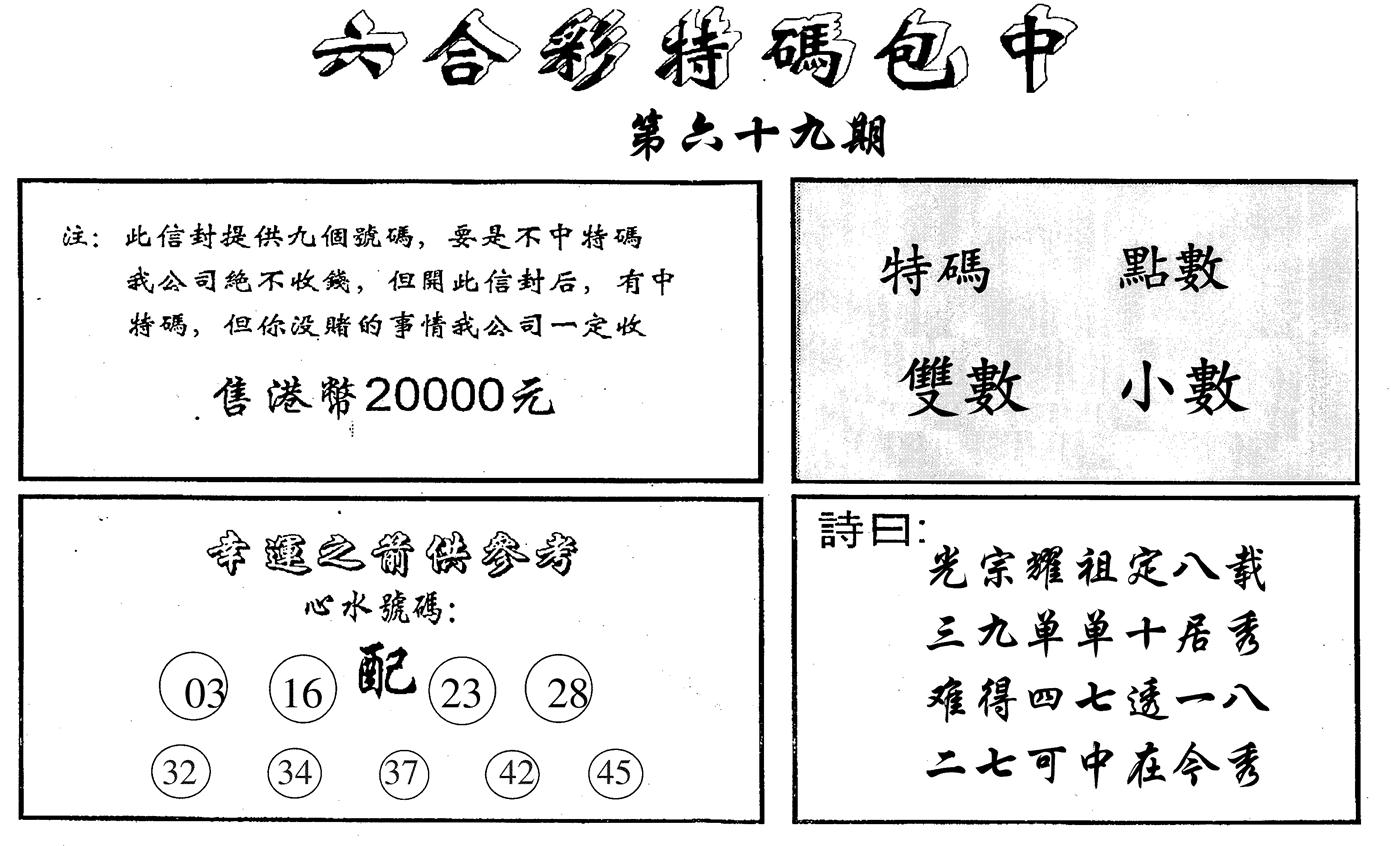 六合彩特碼包中
第六十九期
注：此信封提供九個號碼，要是不中特碼
我公司絶不收錢，但開此信封后，有中
特碼，但你没賭的事情我公司一定收
售港幣20000元
特碼 點數
雙數 小數
幸運之箭供參考
心水號碼：
03 16 配 23 28
32 34 37 42 45
詩曰：
光宗耀祖定八载
三九单单十居秀
难得四七透一八
二七可中在今秀